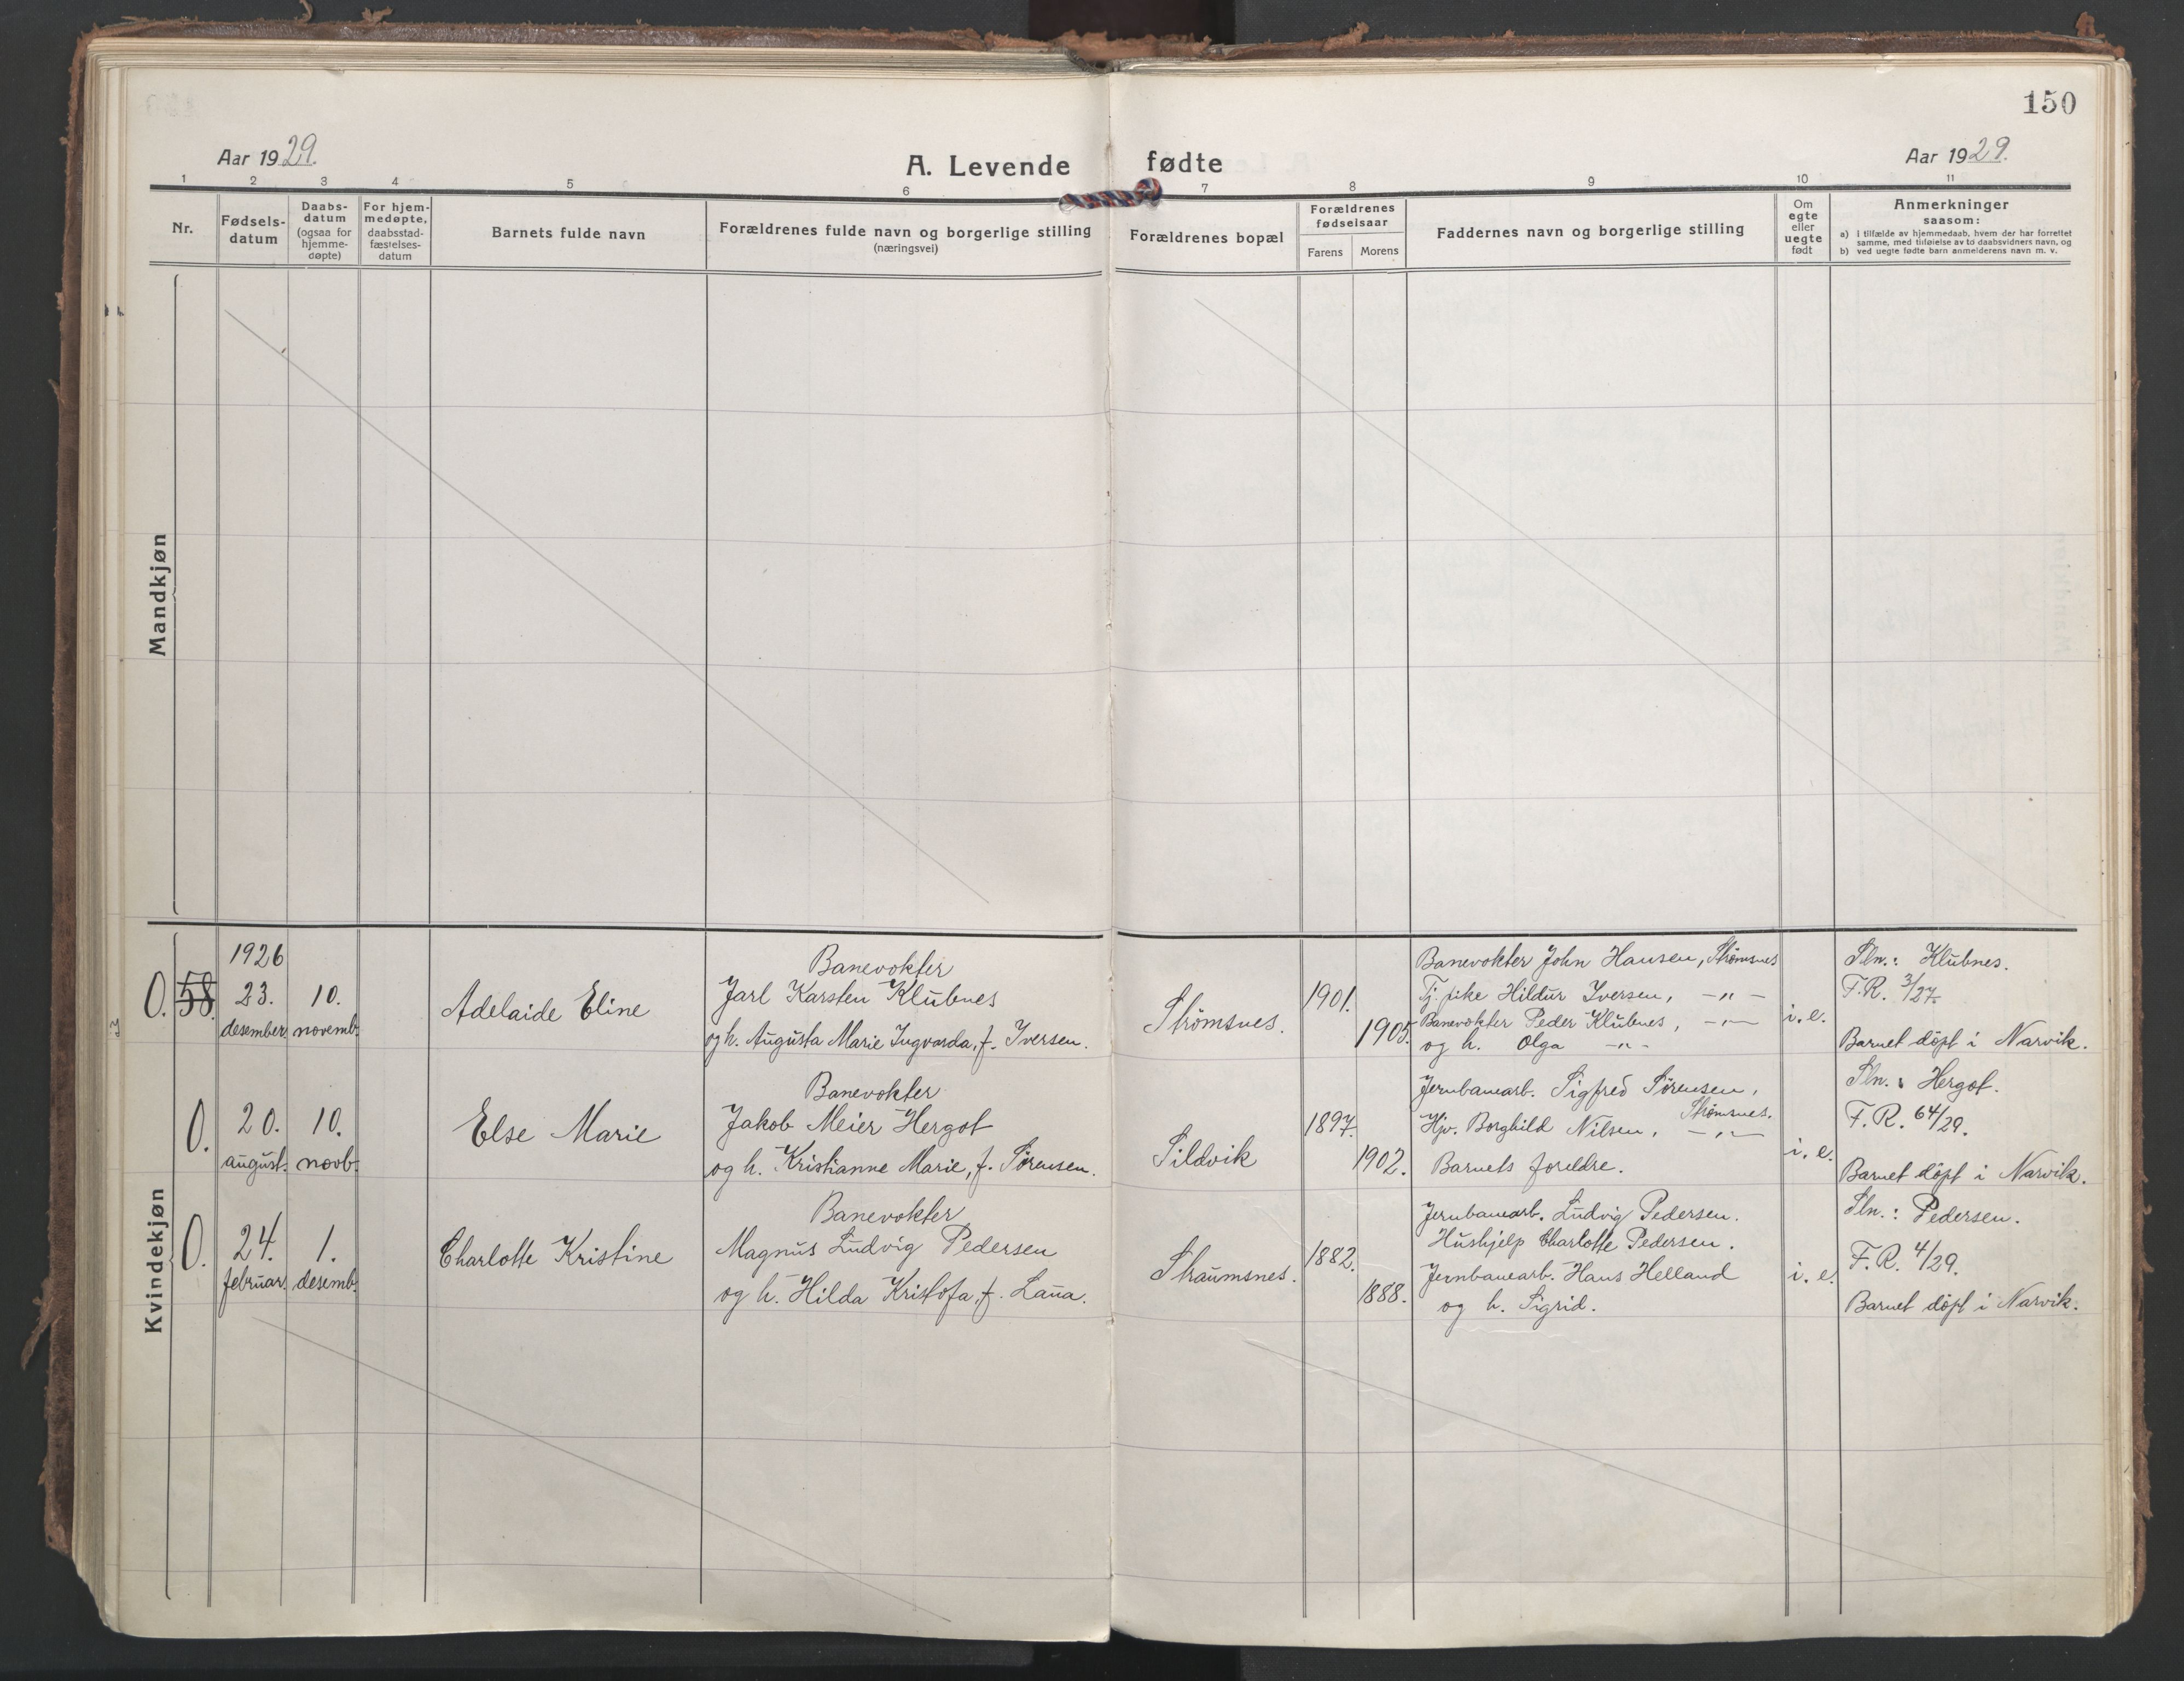 150
Aar 1929.
A. Levende fødte
Aar 1929.
1 2 3 4 5 6 7 8 9 10 11
Nr.
Fødsels-
datum
Daabs-
datum
(ogsaa for
hjemme-
døpte)
For hjem-
medøpte,
daabsstad-
fæstelses-
datum
Barnets fulde navn
Forældrenes fulde navn og borgerlige stilling
(næringsvei)
Forældrenes bopæl
Forældrenes
fødselsaar
Farens Morens
Faddernes navn og borgerlige stilling
Om
egte
eller
uegte
født
Anmerkninger
saasom:
a) i tilfælde av hjemmedaab, hvem der har forrettet
samme, med tilføielse av to daabsvidners navn, og
b) ved uegte fødte barn anmelderens navn m. v.
Mandkjøn
Kvindekjøn
0. 58.
1926
23.
desember.
10.
novemb.
Adelaide Eline
Banevokter
Jarl Karsten Klubnes
og h. Augusta Marie Ingvarda, f. Iversen.
Strömsnes.
1901.
1905.
Banevokter John Hansen, Strömsnes
Tj. pike Hildur Iversen, -"-
Banevokter Peder Klubnes, -"-
og h. Olga -"-
i. e.
Sln.: Klubnes.
F.R. 3/27.
Barnet döpt i Narvik.
0.
20.
august.
10.
novb.
Else Marie
Banevokter
Jakob Meier Hergot
og h. Kristianne Marie, f. Sörensen.
Sildvik
1897.
1902.
Jernbanearb. Sigfred Sörensen,
Strömsnes.
Hjv. Borghild Nilsen, -"-
Barnets foreldre.
i. e.
Sln.: Hergot.
F. R. 64/29.
Barnet döpt i Narvik.
0.
24.
februar.
1.
desemb.
Charlotte Kristine
Banevokter
Magnus Ludvig Pedersen
og h. Hilda Kristofa, f. Laua.
Straumsnes.
1882.
1888.
Jernbanearb. Ludvig Pedersen.
Hushjelp Charlotte Pedersen.
Jernbanearb. Hans Helland
og h. Sigrid.
i. e.
Sln.: Pedersen.
F. R. 4/29.
Barnet döpt i Narvik.